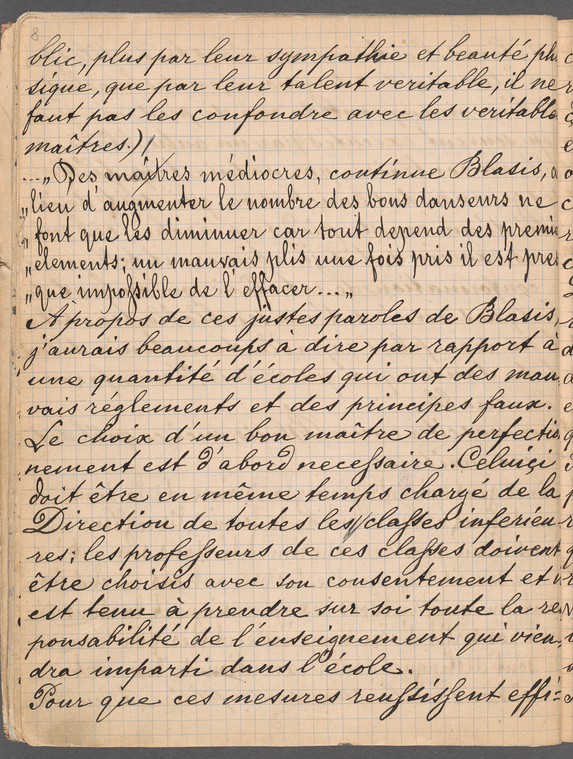 8
blic, plus par leur sympathie et beauté phy
sique, que par leur talent veritable, il ne
faut pas les confondre avec les veritable
maîtres.)
..." Des maîtres médiocres, continue Blasis, a
"lieu d'augmenter le nombre des bons danseurs ne
"font que les diminuer car tout depend des premie
"elements; un mauvais plis une fois pris il est pres
"que impossible de l'effacer..."
A propos de ces justes paroles de Blasis,
j'aurais beaucoups à dire par rapport à
une quantité d'écoles qui ont des mau
vais réglements et des principes faux.
Le choix d'un bon maître de perfectio
nement est d'abord necessaire. Celuiçi
doit être en même temps chargé de la
Direction de toutes les classes inferieu
res; les professeurs de ces classes doivent
être choisis avec son consentement et
est tenu à prendre sur soi toute la re
ponsabilité de l'enseignement qui vien
dra imparti dans l'école.
Pour que ces mesures reussissent effi=